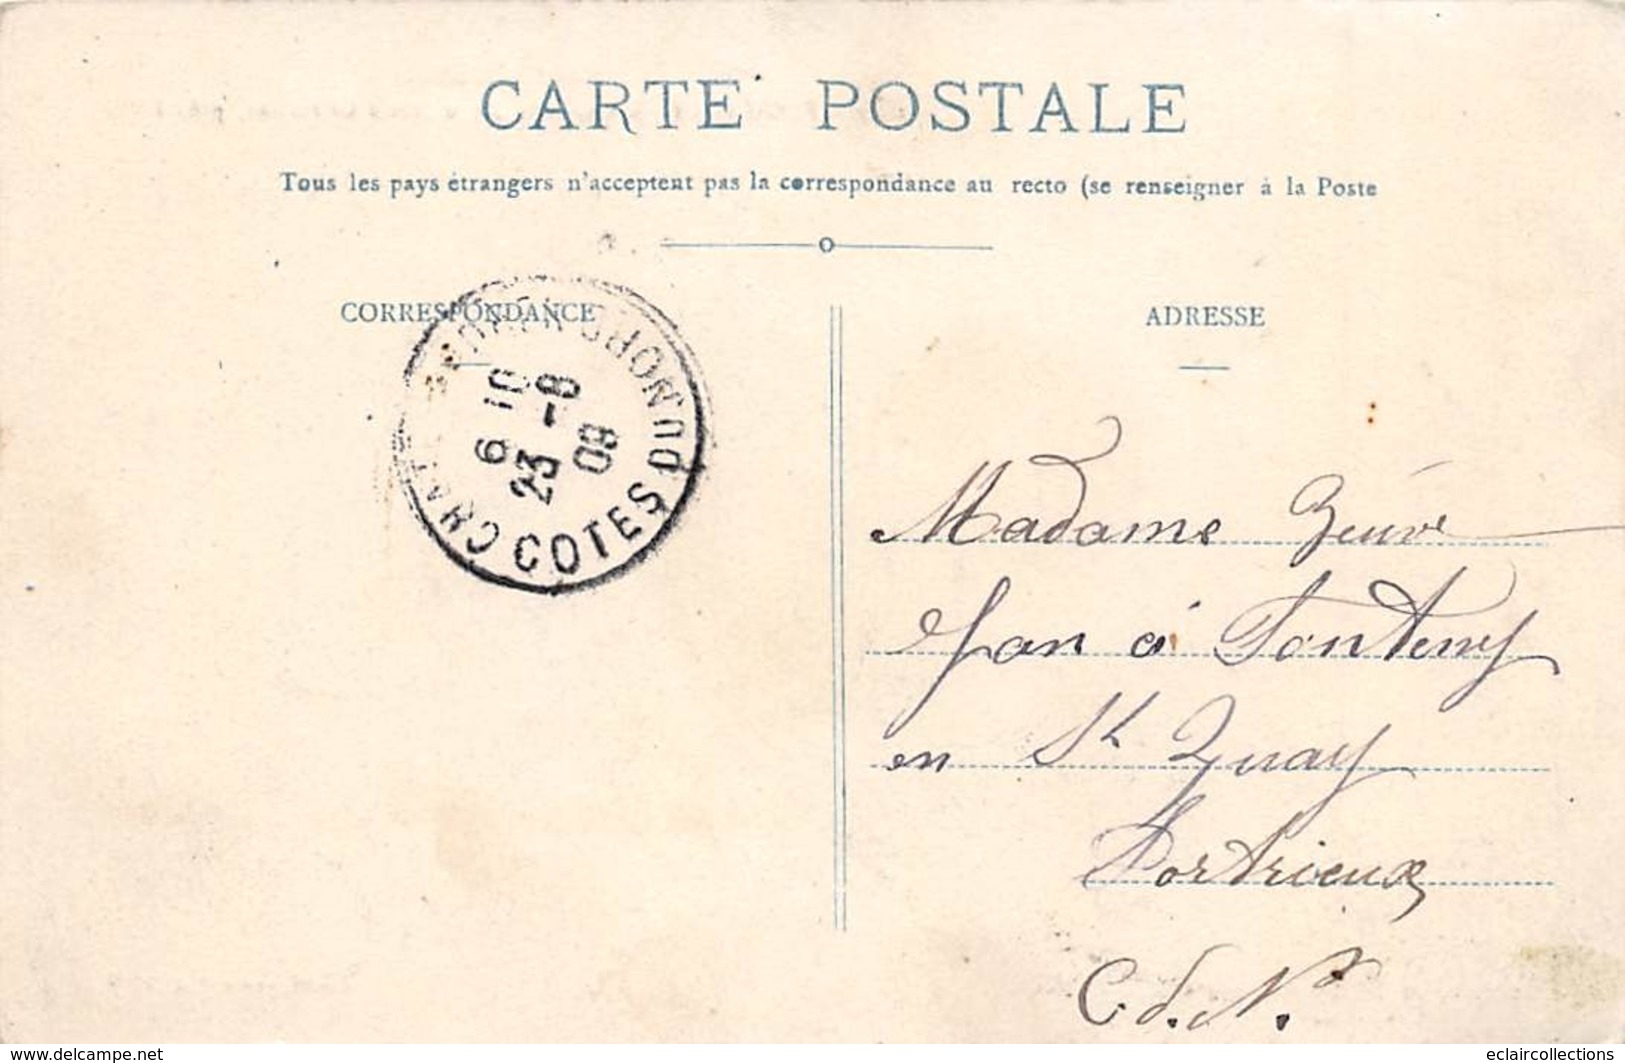 CARTE POSTALE
Tous les pays étrangers n'acceptent pas la correspondance au recto (se renseigner à la Poste
CORRESPONDANCE
ADRESSE
CHAT
COTES DU NORD
6 10
23 - 8
09
Madame
Jan à Fonteny
en St Quay
Portrieux
C. d. N.
www.delcampe.net
eclaircollections